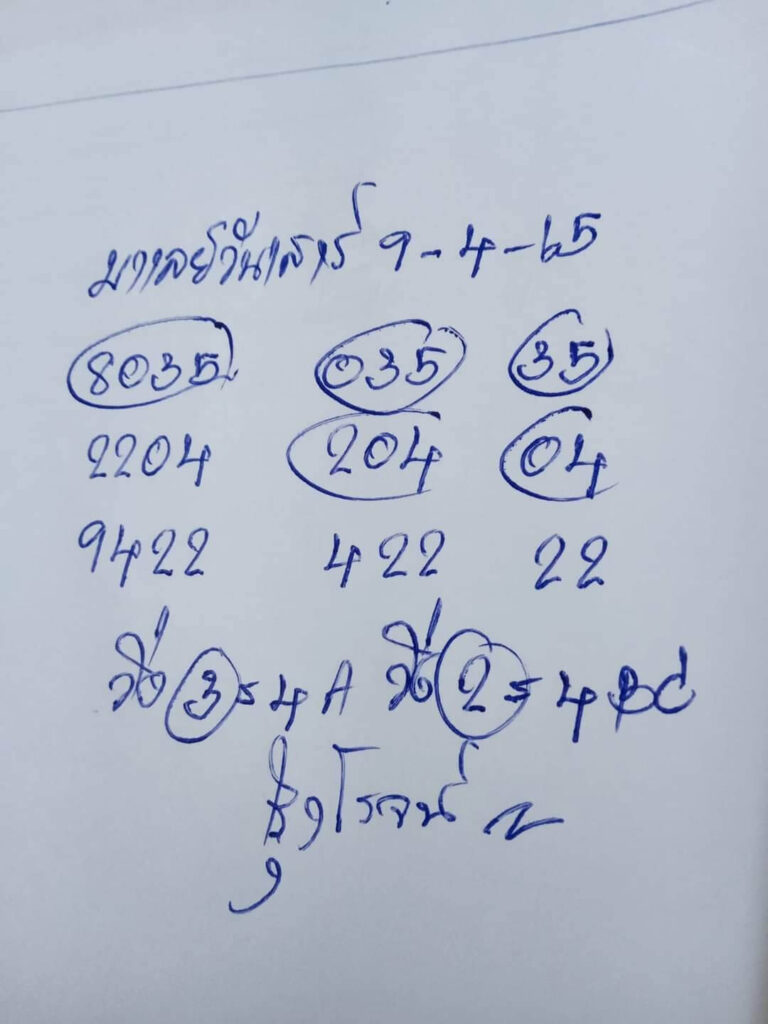 มาเลย์วันเสาร์ 9-4-65
8035 035 35
2204 204 04
9422 422 22
วิ่ง 3 = 4 A วิ่ง 2 = 4 BC
รุ่งโรจน์